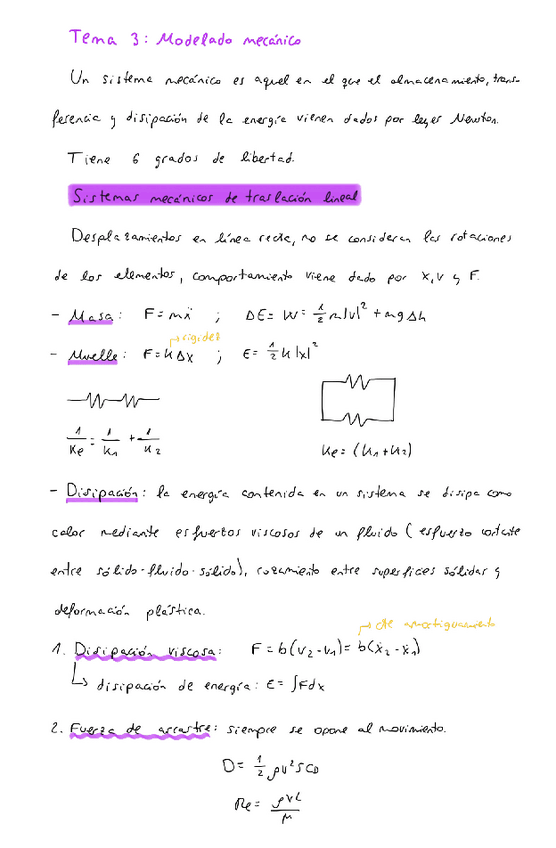 Tema 3: Modelado mecánico
Un sistema mecánico es aquel en el que el almacenamiento, trans-
ferencia y disipación de la energía vienen dados por leyes Newton.
Tiene 6 grados de libertad.
Sistemas mecánicos de traslación lineal
Desplazamientos en línea recta, no se consideran las rotaciones
de los elementos, comportamiento viene dado por x, v y F.
- Masa: F = mẍ ; ΔE = W = 1/2 m|v|² + mgΔh
rigidez
- Muelle: F = kΔx ; E = 1/2 k|x|²
1/Ke = 1/K1 + 1/K2
Ke = (K1 + K2)
- Disipación: la energía contenida en un sistema se disipa como
calor mediante esfuerzos viscosos de un fluido (esfuerzo cortante
entre sólido-fluido-sólido), rozamiento entre superfices sólidas y
deformación plástica.
cte amortiguamiento
1. Disipación viscosa: F = b(v2 - v1) = b(ẋ2 - ẋ1)
disipación de energía: E = ∫Fdx
2. Fuerza de arrastre: siempre se opone al movimiento.
D = 1/2 ρv²SCD
Re = ρvL/μ